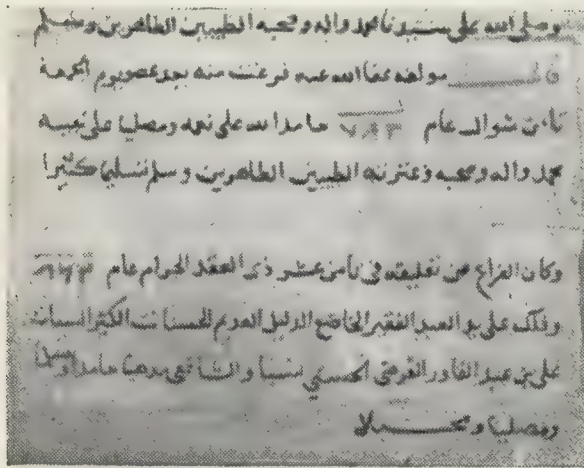 وصلى الله على سيدنا محمد واله وصحبه الطيبين الطاهرين وسلم
قال مولفه عفا الله عنه فرغت منه بعد عصر يوم الجمعة
ثامن شوال عام حامدا لله على نعمه ومصليا على نبيه
محمد واله وصحبه وعترته الطيبين الطاهرين وسلم تسليما كثيرا
وكان الفراغ من تعليقه في ثامن عشر ذي القعدة الحرام عام
وذلك على يد العبد الفقير الخاضع الذليل العديم الحسنات الكثير السيات
علي بن عبد القادر الحسني نسبا والشافعي مذهبا حامدا
ومصليا